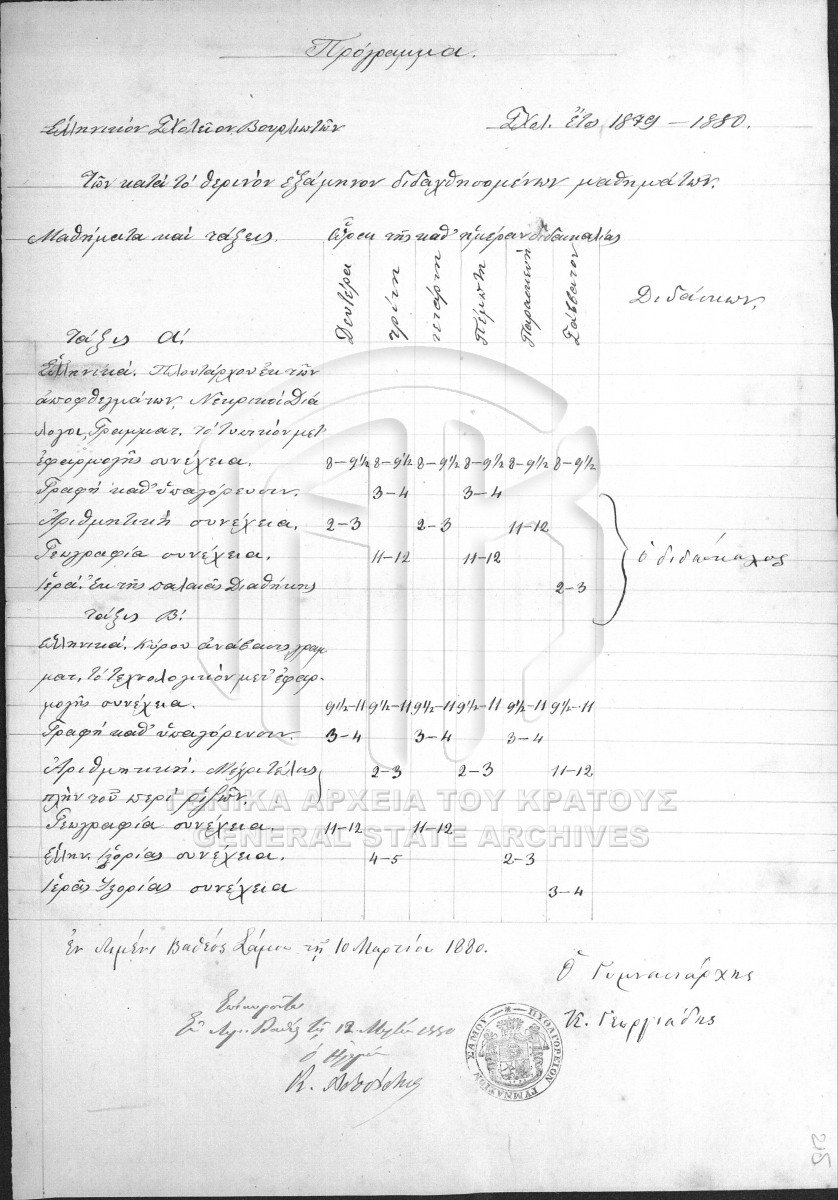 Πρόγραμμα.
Ἑλληνικόν Σχολεῖον Βουρλιωτῶν
Σχολ. ἔτος 1879 – 1880.
Τῶν κατά τό θερινόν ἑξάμηνον διδαχθησομένων μαθημάτων.
Μαθήματα καί τάξεις.
ὧραι τῆς καθ' ἡμέραν διδασκαλίας
Δευτέρα Τρίτη Τετάρτη Πέμπτη Παρασκευή Σάββατον
Διδάσκων.
Τάξις Α!
Ἑλληνικά. Πλουτάρχου ἐκ τῶν
ἀποφθεγμάτων, Νεκρικοί Διά
λογοι, Γραμματ. τό τυπικόν μετ
ἐφαρμογῆς συνέχεια. 8–9½ 8–9½ 8–9½ 8–9½ 8–9½ 8–9½
Γραφή καθ' ὑπαγόρευσιν. 3–4 3–4
Ἀριθμητική συνέχεια. 2–3 2–3 11–12
Γεωγραφία συνέχεια. 11–12 11–12
ὁ διδάσκαλος
Ἱερά. Ἐκ τῆς παλαιᾶς Διαθήκης 2–3
Τάξις Β!
Ἑλληνικά. Κύρου ἀνάβασις γραμ
ματ. τό τεχνολογικόν μετ' ἐφαρ-
μογῆς συνέχεια. 9½–11 9½–11 9½–11 9½–11 9½–11 9½–11
Γραφή καθ' ὑπαγόρευσιν. 3–4 3–4 3–4
Ἀριθμητική. Μέχρι τέλους 2–3 2–3 11–12
πλήν τοῦ περί ῥιζῶν.
Γεωγραφία συνέχεια. 11–12 11–12
Ἑλλην. Ἱστορίας συνέχεια. 4–5 2–3
Ἱερᾶς Ἱστορίας συνέχεια 3–4
ΓΕΝΙΚΑ ΑΡΧΕΙΑ ΤΟΥ ΚΡΑΤΟΥΣ
GENERAL STATE ARCHIVES
Ἐν Λιμένι Βαθέος Σάμου τῇ 10 Μαρτίου 1880.
Ὁ Γυμνασιάρχης
Κ. Γεωργιάδης
Ἐπικυροῦται
Ἐν Λιμ. Βαθέος τῇ 12 1880
Ὁ
Κ.
ΠΥΘΑΓΟΡΕΙΟΝ ΓΥΜΝΑΣΙΟΝ ΣΑΜΟΥ
215